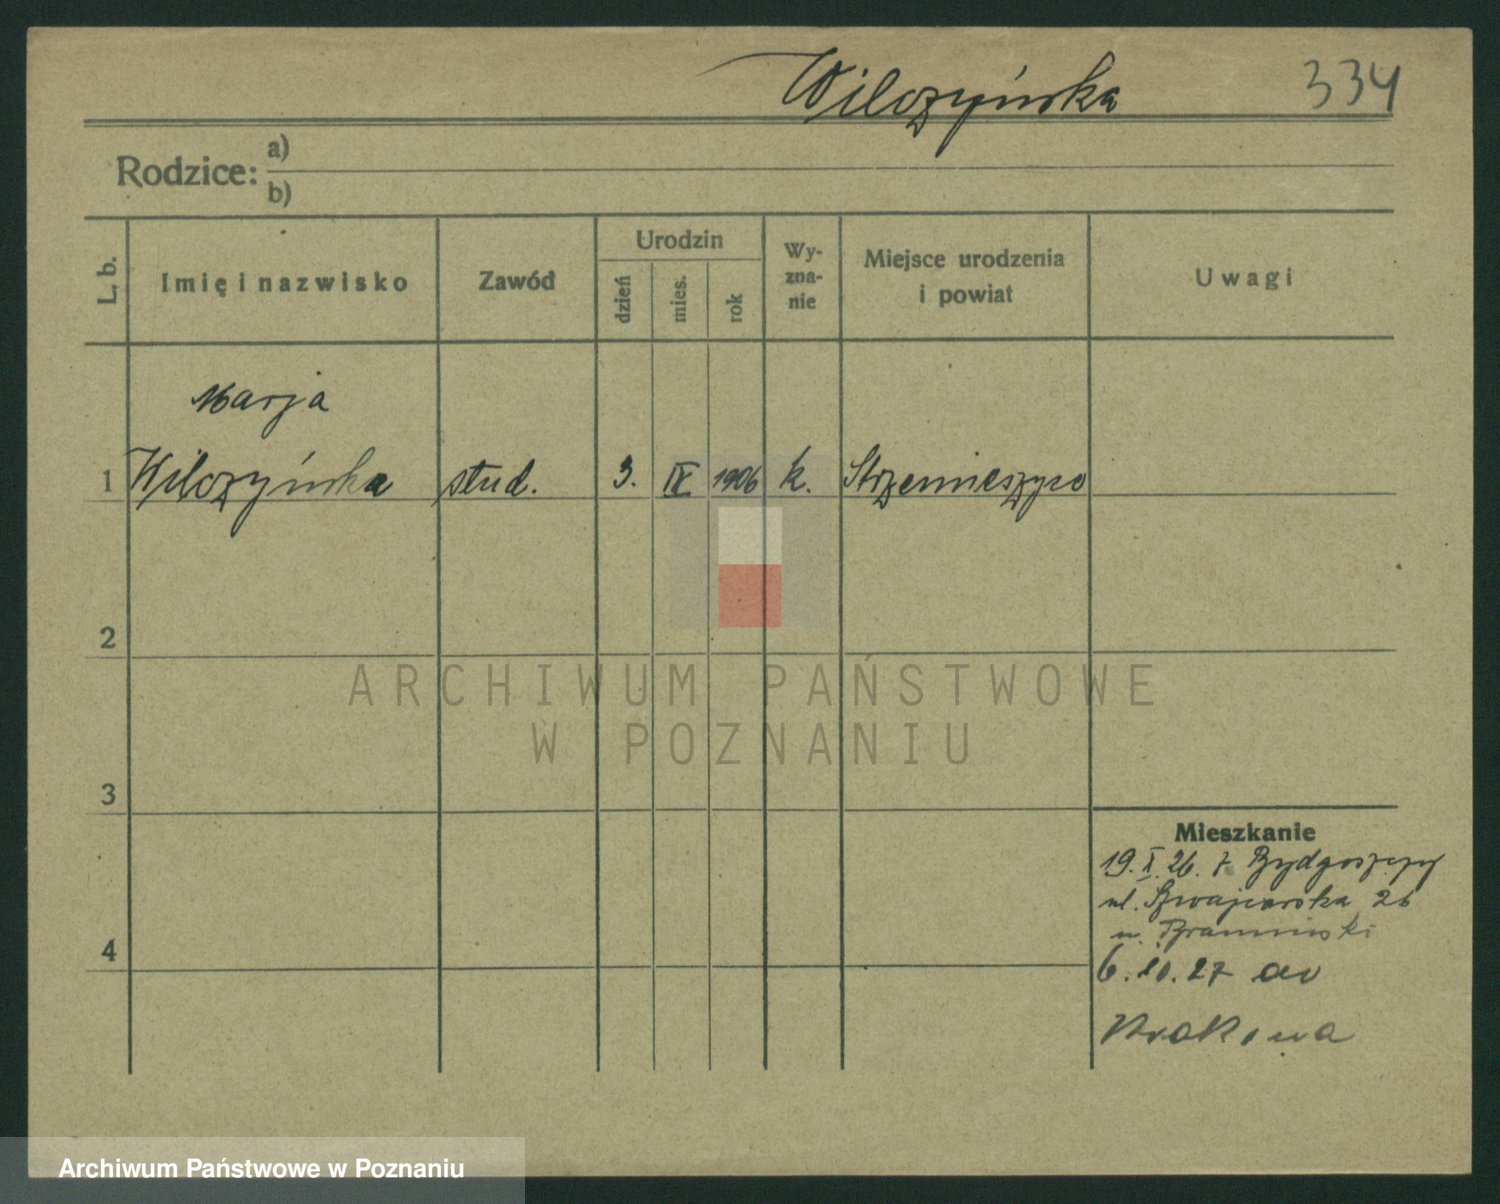 Wilczyńska 334
Rodzice: a)
b)
L. b. Imię i nazwisko Zawód Urodzin dzień mies. rok Wy-zna-nie Miejsce urodzenia i powiat Uwagi
Marja
1 Wilczyńska stud. 3. IX 1906 k. Strzemieszyce
2
ARCHIWUM PAŃSTWOWE
W POZNANIU
3
Mieszkanie
19. X. 26. z Bydgoszczy
ul. Szwajcarska 26
u.
4
6. 10. 27 do
Krakowa
Archiwum Państwowe w Poznaniu